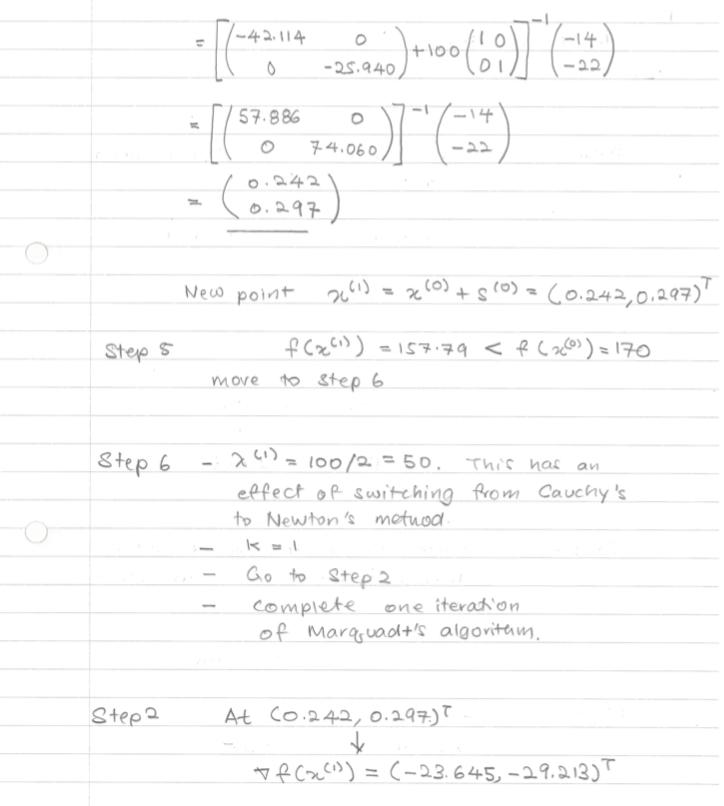 = [(-42.114 0
0 -25.940) + 100 (1 0
0 1)]^-1 (-14
-22)
= [(57.886 0
0 74.060)]^-1 (-14
-22)
= (0.242
0.297)
New point x^(1) = x^(0) + s^(0) = (0.242, 0.297)^T
Step 5 f(x^(1)) = 157.79 < f(x^(0)) = 170
move to step 6
Step 6 - λ^(1) = 100/2 = 50. This has an
effect of switching from Cauchy's
to Newton's method.
- k = 1
- Go to Step 2
- complete one iteration
of Marquadt's algorithm.
Step 2 At (0.242, 0.297)^T
↓
∇f(x^(1)) = (-23.645, -29.213)^T